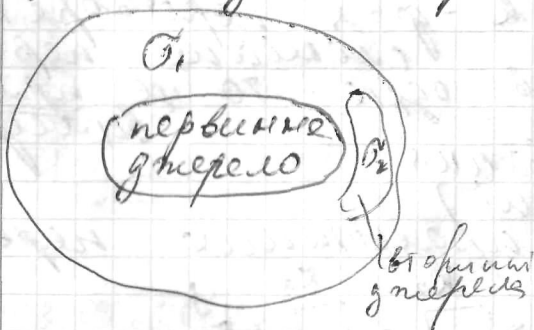 σ₁
первинне
джерело
σ₂
вторинні
джерела